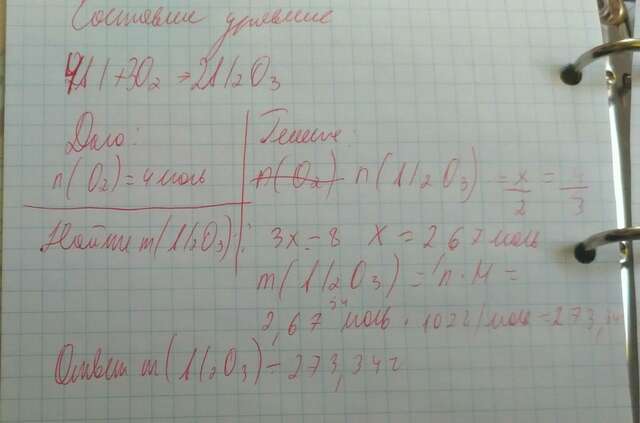 Составим уравнение
4Al+3O₂→2Al₂O₃
Дано:
n(O₂)=4моль
Найти m(Al₂O₃):
Решение:
n(O₂) n(Al₂O₃) = x/2 = 4/3
3x=8 x=2,67моль
m(Al₂O₃)=n·M=
2,67 моль·102г/моль=273,34
Ответ m(Al₂O₃)=273,34г